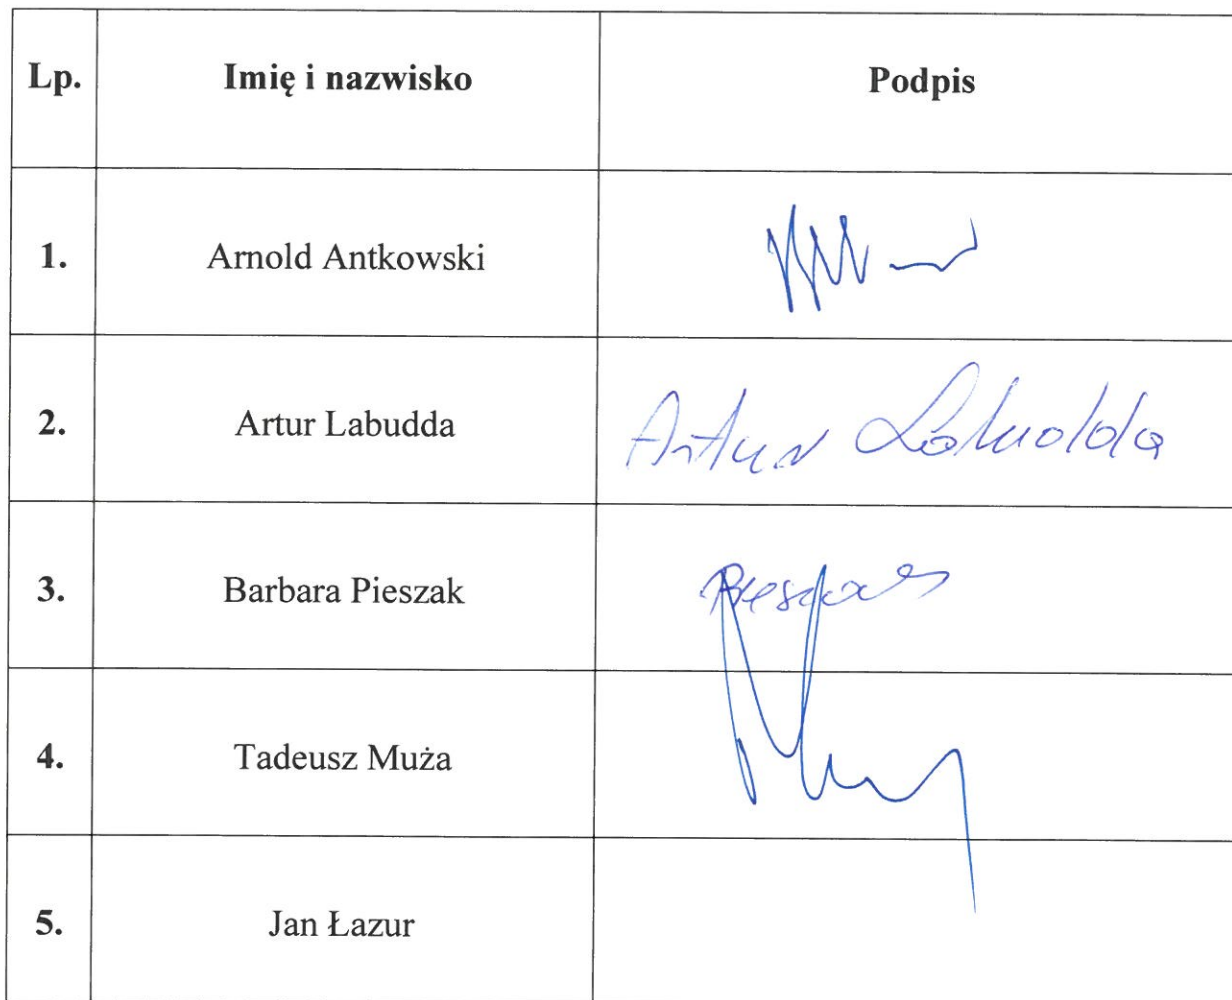 Lp. Imię i nazwisko Podpis
1. Arnold Antkowski
2. Artur Labudda Artur Labudda
3. Barbara Pieszak
4. Tadeusz Muża
5. Jan Łazur